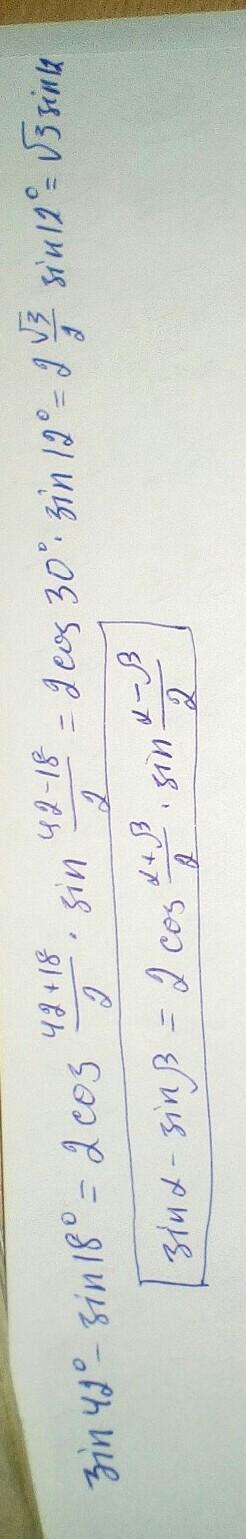 sin 42° - sin 18° = 2 cos \frac{42+18}{2} · sin \frac{42-18}{2} = 2 cos 30° · sin 12° = 2 \frac{√3}{2} sin 12° = √3 sin 12
sin α - sin β = 2 cos \frac{α+β}{2} · sin \frac{α-β}{2}